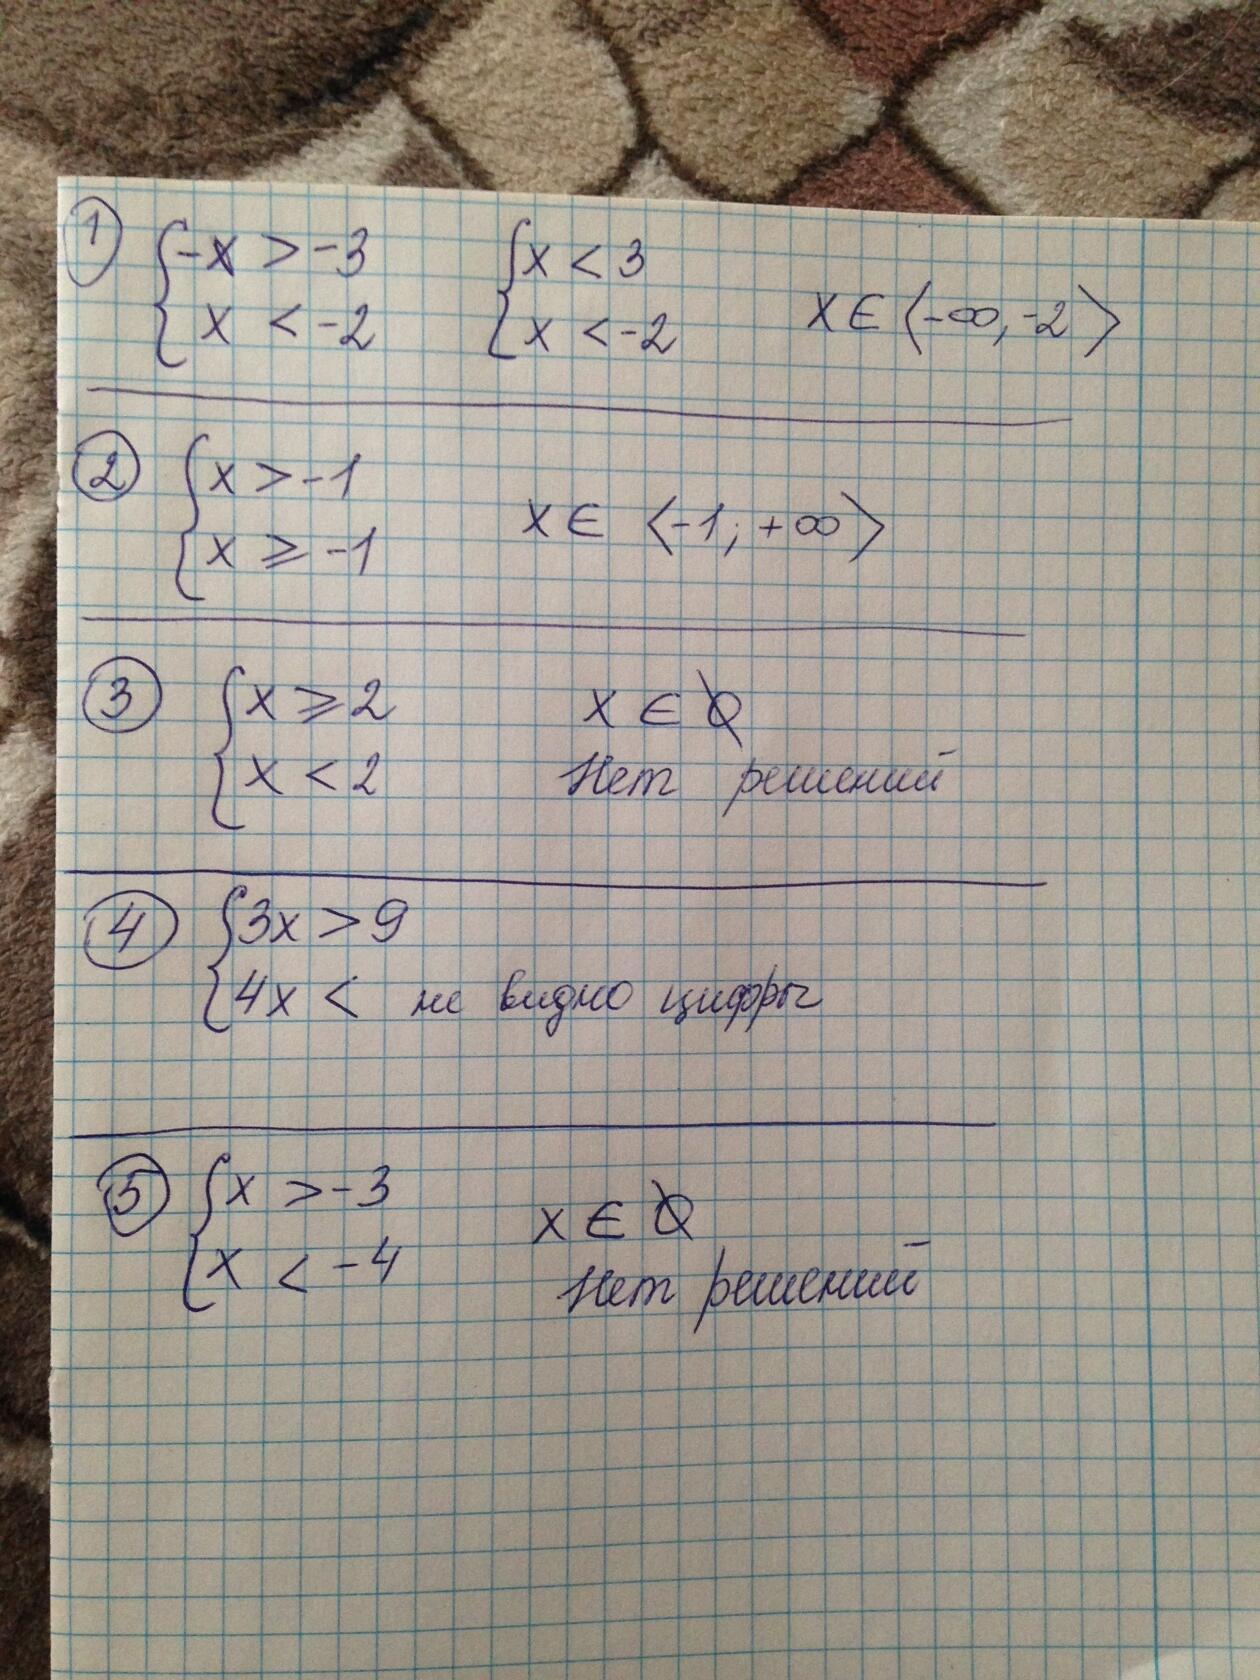 1 { -x > -3 { x < 3
x < -2 x < -2 x ∈ ⟨-∞, -2⟩
2 { x > -1
x ≥ -1 x ∈ ⟨-1; +∞⟩
3 { x ≥ 2 x ∈ ∅
x < 2 Нет решений
4 { 3x > 9
4x < не видно цифры
5 { x > -3 x ∈ ∅
x < -4 Нет решений